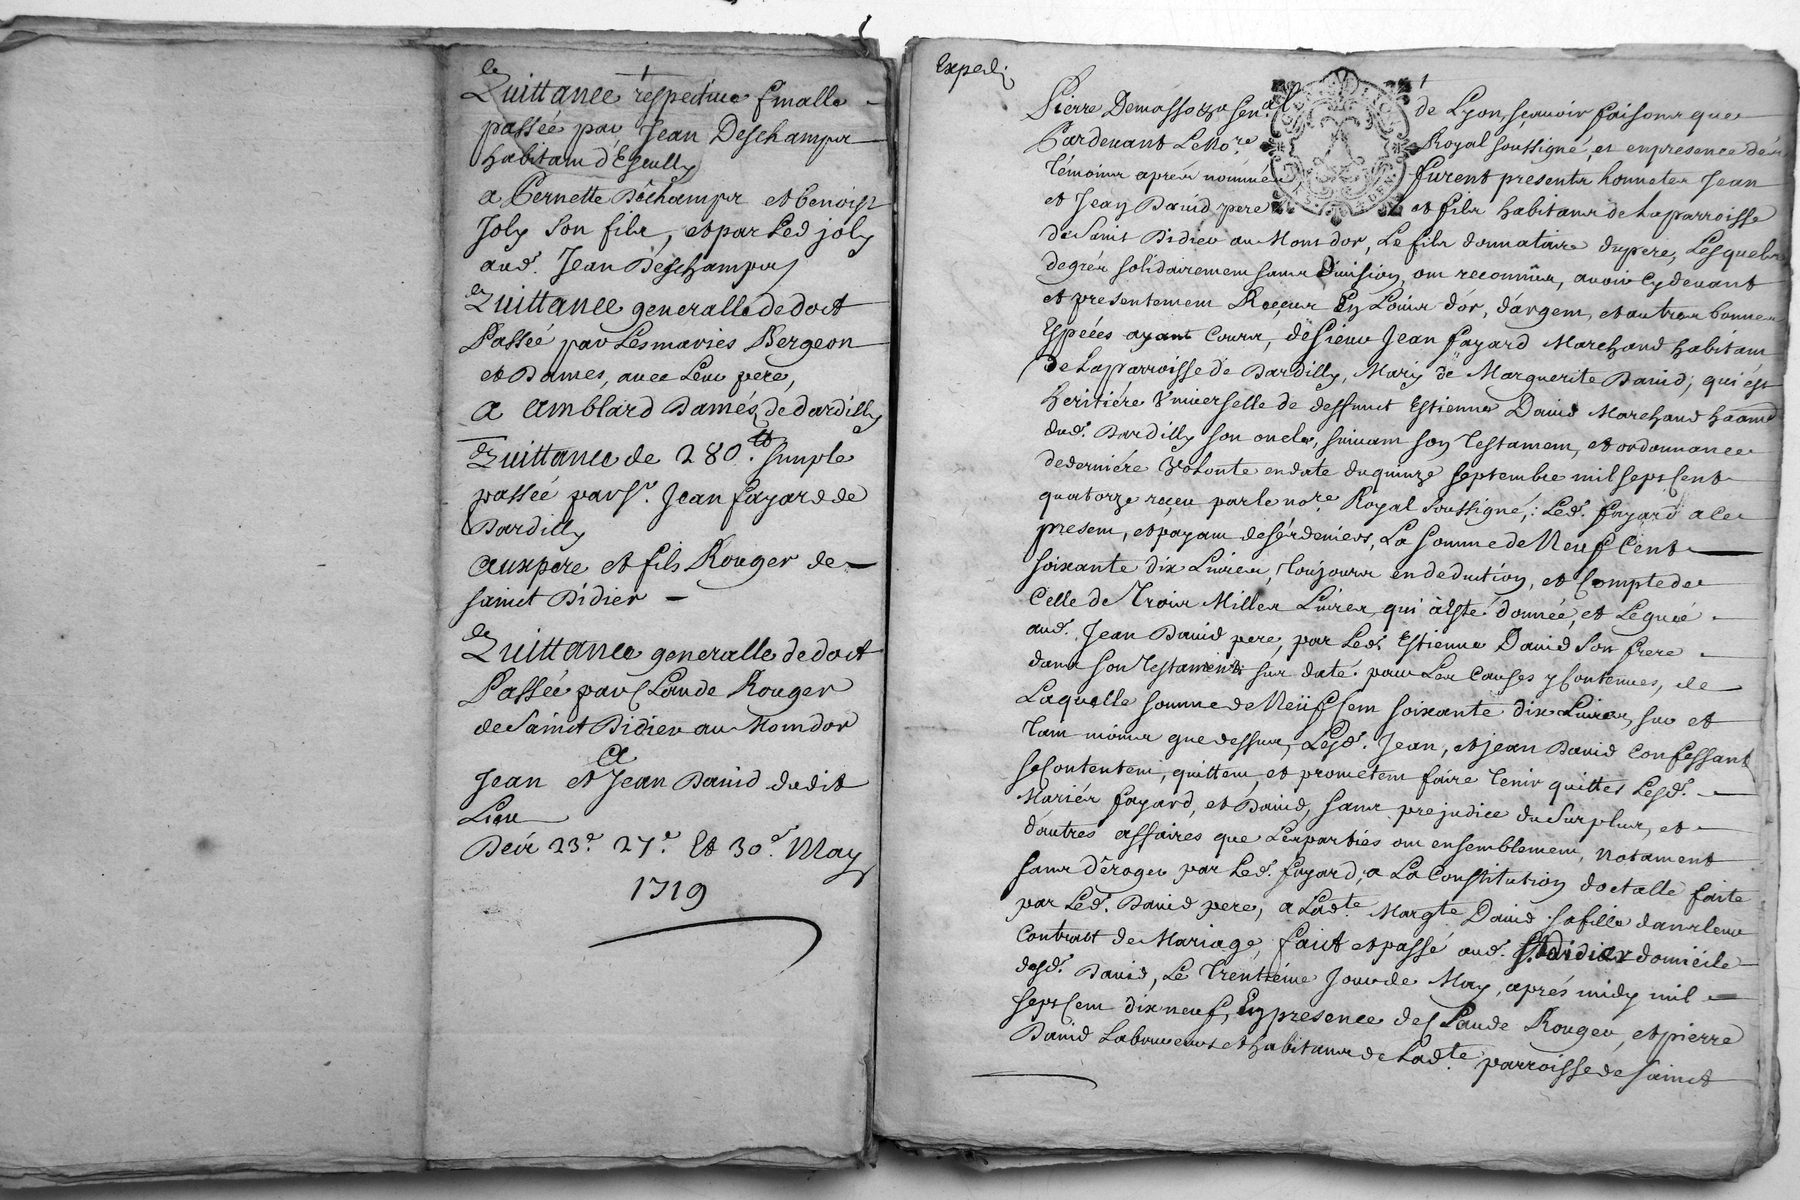 1
Quittance respective finalle
passée par Jean Deschamps
habitant d'Escully
a Pernette Dêchamps et benoist
Joly son fils, et par led joly
aud. Jean Deschamps
Quittance generalle de doct
Passée par Les mariés Bergeon
et Damés, avec Leur pere,
a Amblard Damés de dardilly
Quittance de 280.ᵗᵗ simple
passée par Sʳ. Jean fayard de
Dardilly
aux pere et fils Rouger de
sainct Didier
Quittance generalle de doct
Passée par Claude Rouger
de Sainct Didier au Montdor
a
Jean et Jean David dudit
Lieu
Des 23.ᵉ 27.ᵉ Et 30.ᵉ May
1719
Expedi
1
Pierre Demasso sen.ᵃˡ de Lyon, sçavoir faisons que
Pardevant Le No.ʳᵉ Royal soussigné, et en presence des
témoins aprés nommés furent presents honnetes Jean
et Jean David pere et fils habitans de La parroisse
de Saint Didier au Mont dor, Le fils donnataire du pere, Lesquels
de grér solidairement sans division, ont reconnus, avoir cy devant
et presentement Reçeus En Loüis d'or, d'argent, et autres bonnes
Espéces ayant cours, de Sieur Jean fayard Marchand habitant
de La parroisse de Dardilly, Mary de Marguerite David, qui ést
heritiére Vniverselle de deffunct Estienne David Marchand haânt
dud. Dardilly son oncle, suivant son testament, et ordonnance
de derniére Volonte en date du quinze septembre mil sept Cent
quatorze reçeu par le no.ʳᵉ Royal soussigné; Led. fayard a ce
present, et payant de sés deniers, La somme de Neuf Cent
soixante dix Livres, toujours en deduction, et Compte de
Celle de Trois Milles Livres, qui à esté donnée, et Leguée
aud. Jean David pere, par Led. Estienne David son frere
dans son testament sus daté. pour Les Causes y Contenues, de
Laquelle somme de Neüf Cent soixante dix Livres, sur et
tant moins que dessus, Lesd. Jean, et jean David Confessant
se Contentent, quittent, et prometent faire tenir quittes Lesd.
Mariér fayard, et David, sans prejudice du surplus, et
d'autres affaires que Les partiés ont ensemblement, Notament
sans déroger par Led. fayard, a La Constitution doctalle faite
par Led. David pere, a Ladᵗᵉ. Margᵗᵉ David sa fille dans leur
Contract de Mariage, faict et passé aud. Sᵗ didier domicile
desd. David, Le Trentiéme Jour de May, aprés midy mil
sept Cent dix neuf, En presence de Claude Rouger, et pierre
David Laboureurs et habitans de Ladᵗᵉ. parroisse de Sainct